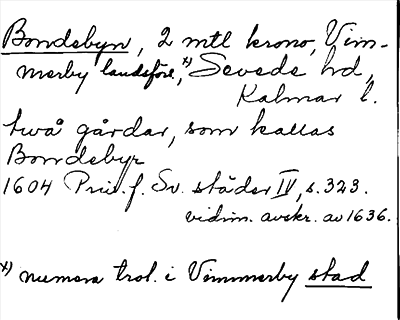 Bondebyn, 2 mtl krono, Vim-
merby landsförs,*) Sevede hd,
Kalmar l.
två gårdar, som kallas
Bondebyr
1604 Priv. f. Sv. städer IV, s. 323.
vidim. avskr. av 1636.
*) numera trol. i Vimmerby stad